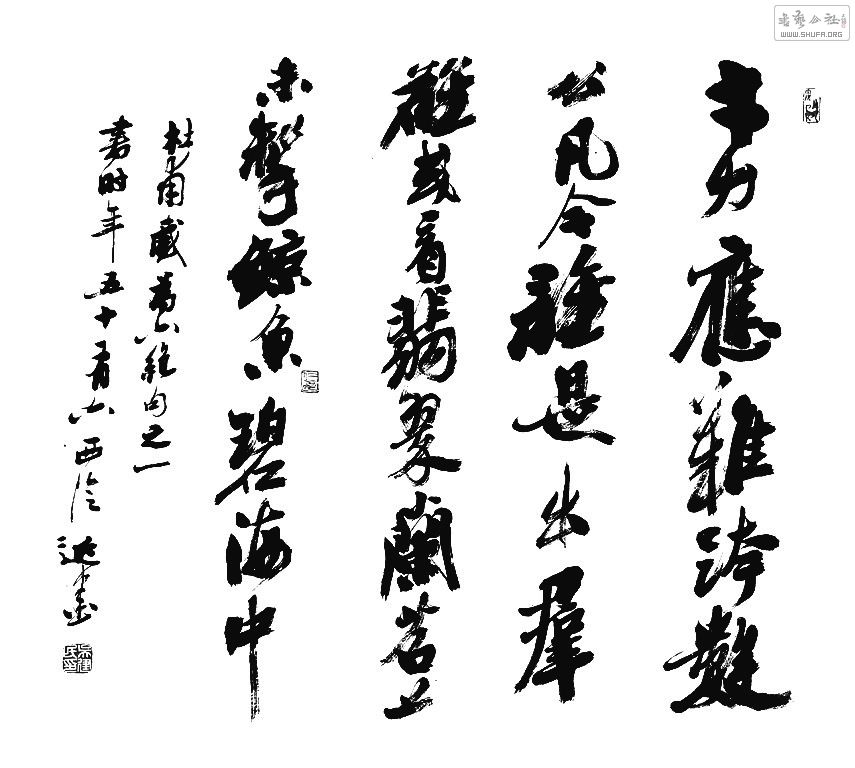 書藝公社
WWW.SHUFA.ORG
才力應難跨數
公凡今誰是出羣
雄或看翡翠蘭苕上
未掣鯨魚碧海中
杜甫戲為六絕句之一
时年五十有六西泠